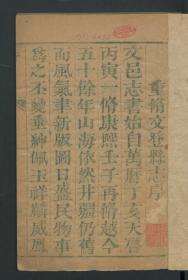 重脩文登縣志序
文邑志書始自萬曆丁亥天啓
丙寅一脩康熙壬子再脩越今
五十餘年山海依然井疆仍舊
而風氣聿新版圖日盛民物事
爲之丕變垂紳佩玉祥麟威鳳